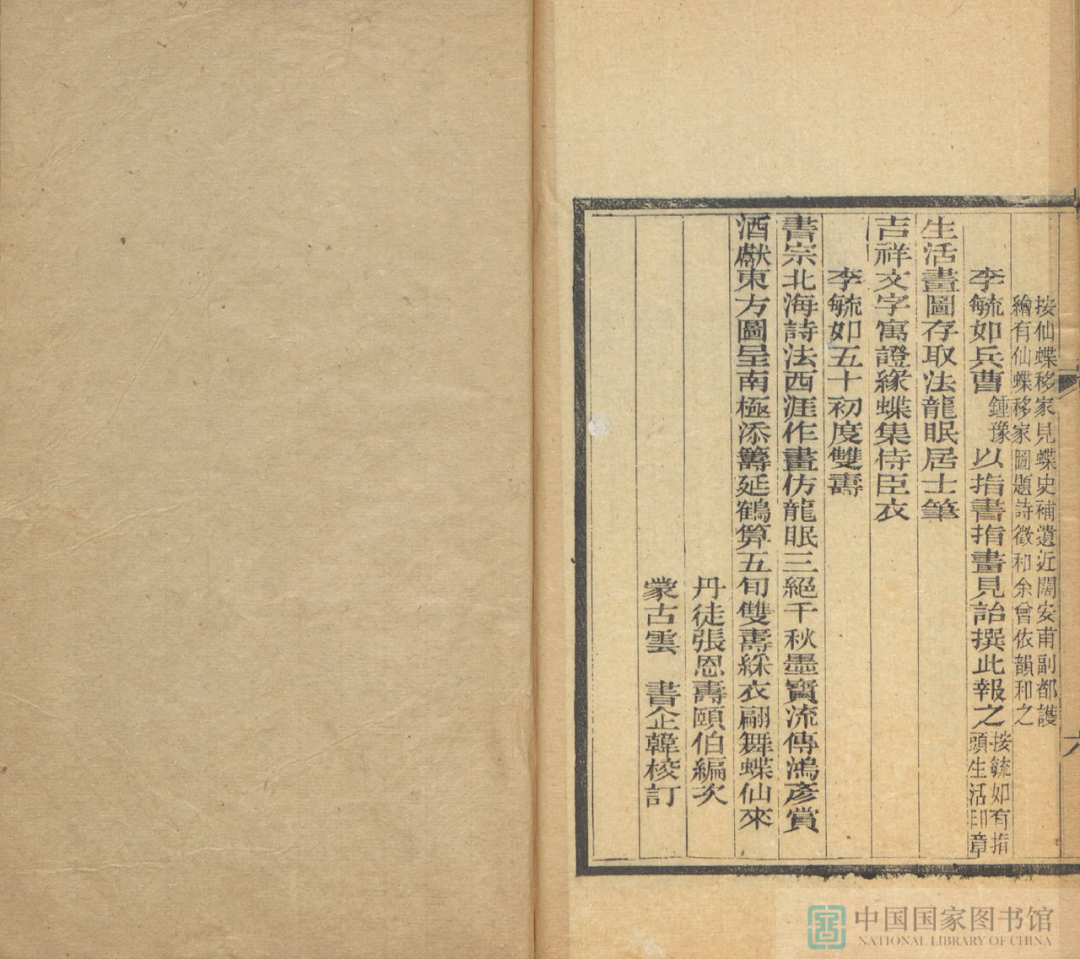 按仙蝶移家見蝶史補遺近闊安甫副都護
繪有仙蝶移家圖題詩徵和余曾依韻和之
李毓如兵曹鍾豫以指書指畫見詒撰此報之按毓如有指頭生活印章
生活畫圖存取法龍眠居士筆
吉祥文字寓證緣蝶集侍臣衣
李毓如五十初度雙壽
書宗北海詩法西涯作畫仿龍眠三絕千秋墨寶流傳鴻彥賞
酒獻東方圖呈南極添籌延鶴算五旬雙壽綵衣翩舞蝶仙來
丹徒張恩壽頤伯編次
蒙古雲　書企韓校訂
六
中国国家图书馆
NATIONAL LIBRARY OF CHINA